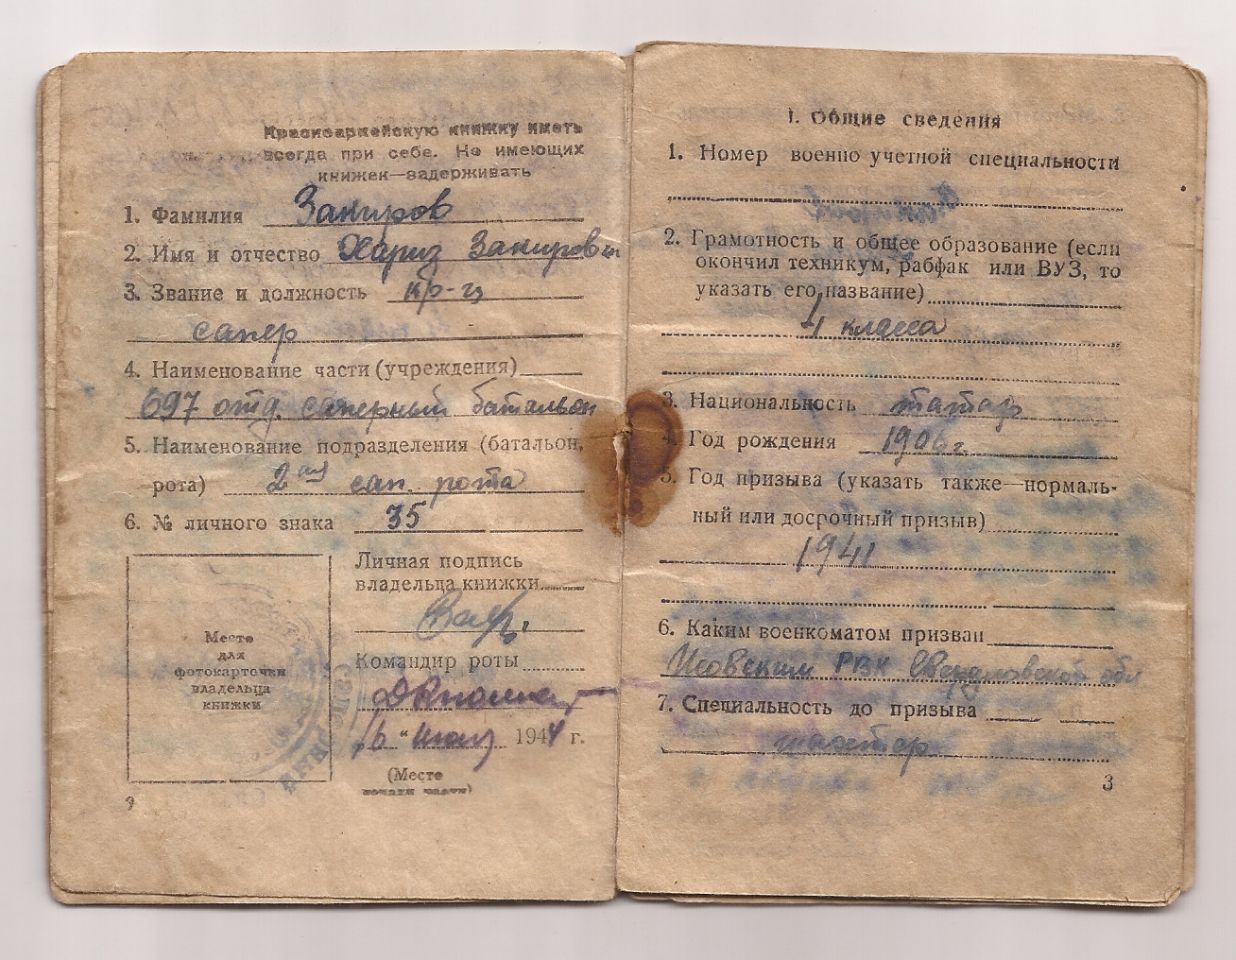 Красноармейскую книжку иметь
всегда при себе. Не имеющих
книжек—задерживать
1. Фамилия Закиров
2. Имя и отчество Хариз Закиров
3. Звание и должность кр-ц
сапер
4. Наименование части (учреждения)
697 отд. саперный батальон
5. Наименование подразделения (батальон,
рота) 2ая сап. рота
6. № личного знака 35
Место
для
фотокарточки
владельца
книжки
Личная подпись
владельца книжки
Командир роты
16 "
1944 г.
(Место
печати части)
I. Общие сведения
1. Номер военно учетной специальности
2. Грамотность и общее образование (если
окончил техникум, рабфак или ВУЗ, то
указать его название)
4 класса
3. Национальность татар
4. Год рождения 1906 г.
5. Год призыва (указать также—нормаль-
ный или досрочный призыв)
1941
6. Каким военкоматом призван
РВК Свердловской обл
7. Специальность до призыва
шахтер
3